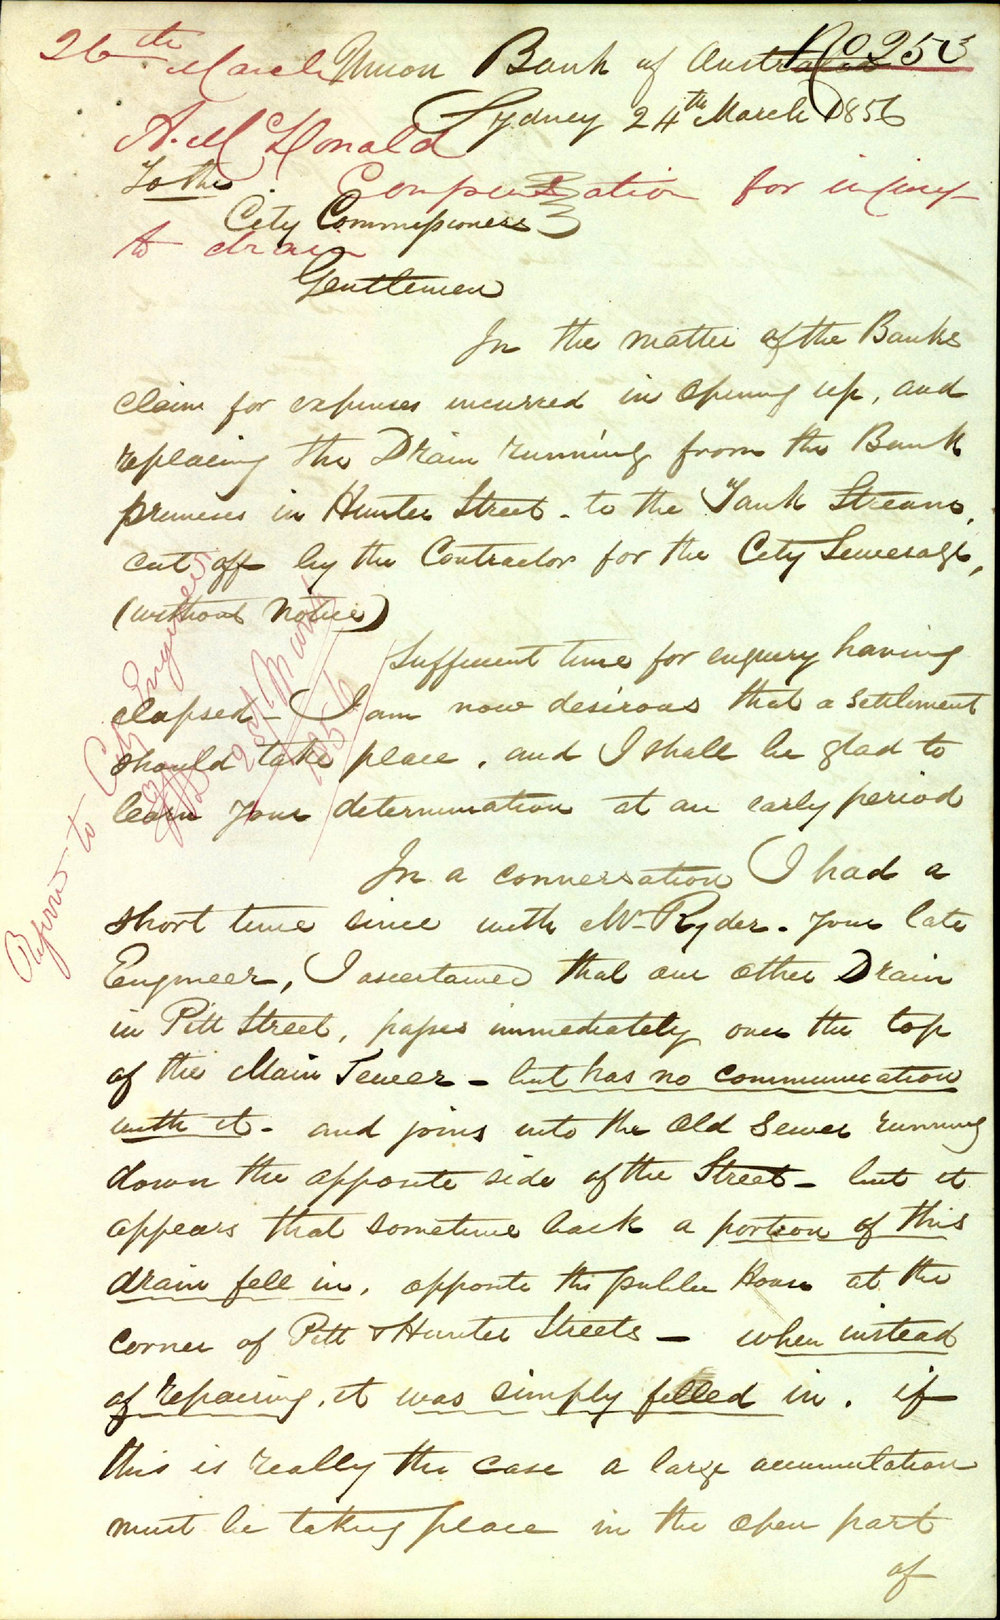 26th March
No 253
Union Bank of Australia
Sydney 24th March 1856
A. McDonald
Compensation for injury
to drain
To the
City Commissioners
Gentlemen
In the matter of the Banks
claim for expenses incurred in opening up, and
replacing the Drain running from the Bank
premises in Hunter Street - to the Tank Stream,
cut off by the Contractor for the City Sewerage,
(without notice)
Sufficient time for enquiry having
elapsed - I am now desirous that a settlement
should take place, and I shall be glad to
learn your determination at an early period
Referred to City Engineer
26th March
1856
In a conversation I had a
short time since with Mr Ryder. your late
Engineer, I ascertained that our other Drain
in Pitt Street, passes immediately over the top
of the Main Sewer - but has no communication
with it - and joins into the Old Sewer running
down the opposite side of the Street - but it
appears that sometime back a portion of this
drain fell in, opposite the public House at the
corner of Pitt & Hunter Streets - when instead
of repairing, it was simply filled in. if
this is really the case a large accumulation
must be taking place in the open part
of